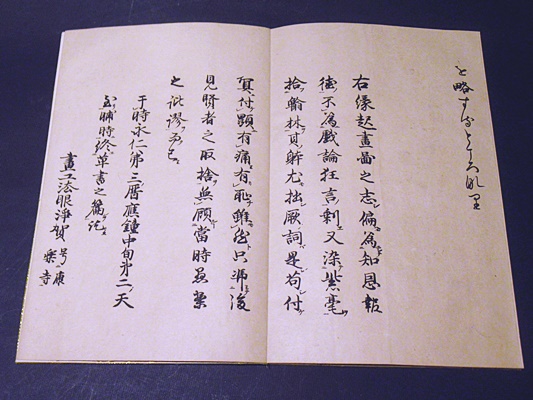 を略するところなり
右縁起畫啚之志偏為知恩報
徳不為戯論狂言剰又染紫毫
拾翰林其躰尤拙厥詞是苟付
冥付顕有痛有耻雖然只馮後
見賢者之取捨無顧當時愚案
之訛謬而已
于時永仁第三暦應鐘中旬第二天
至晡時終草書之篇訖
畫工法眼淨賀 号康
楽寺